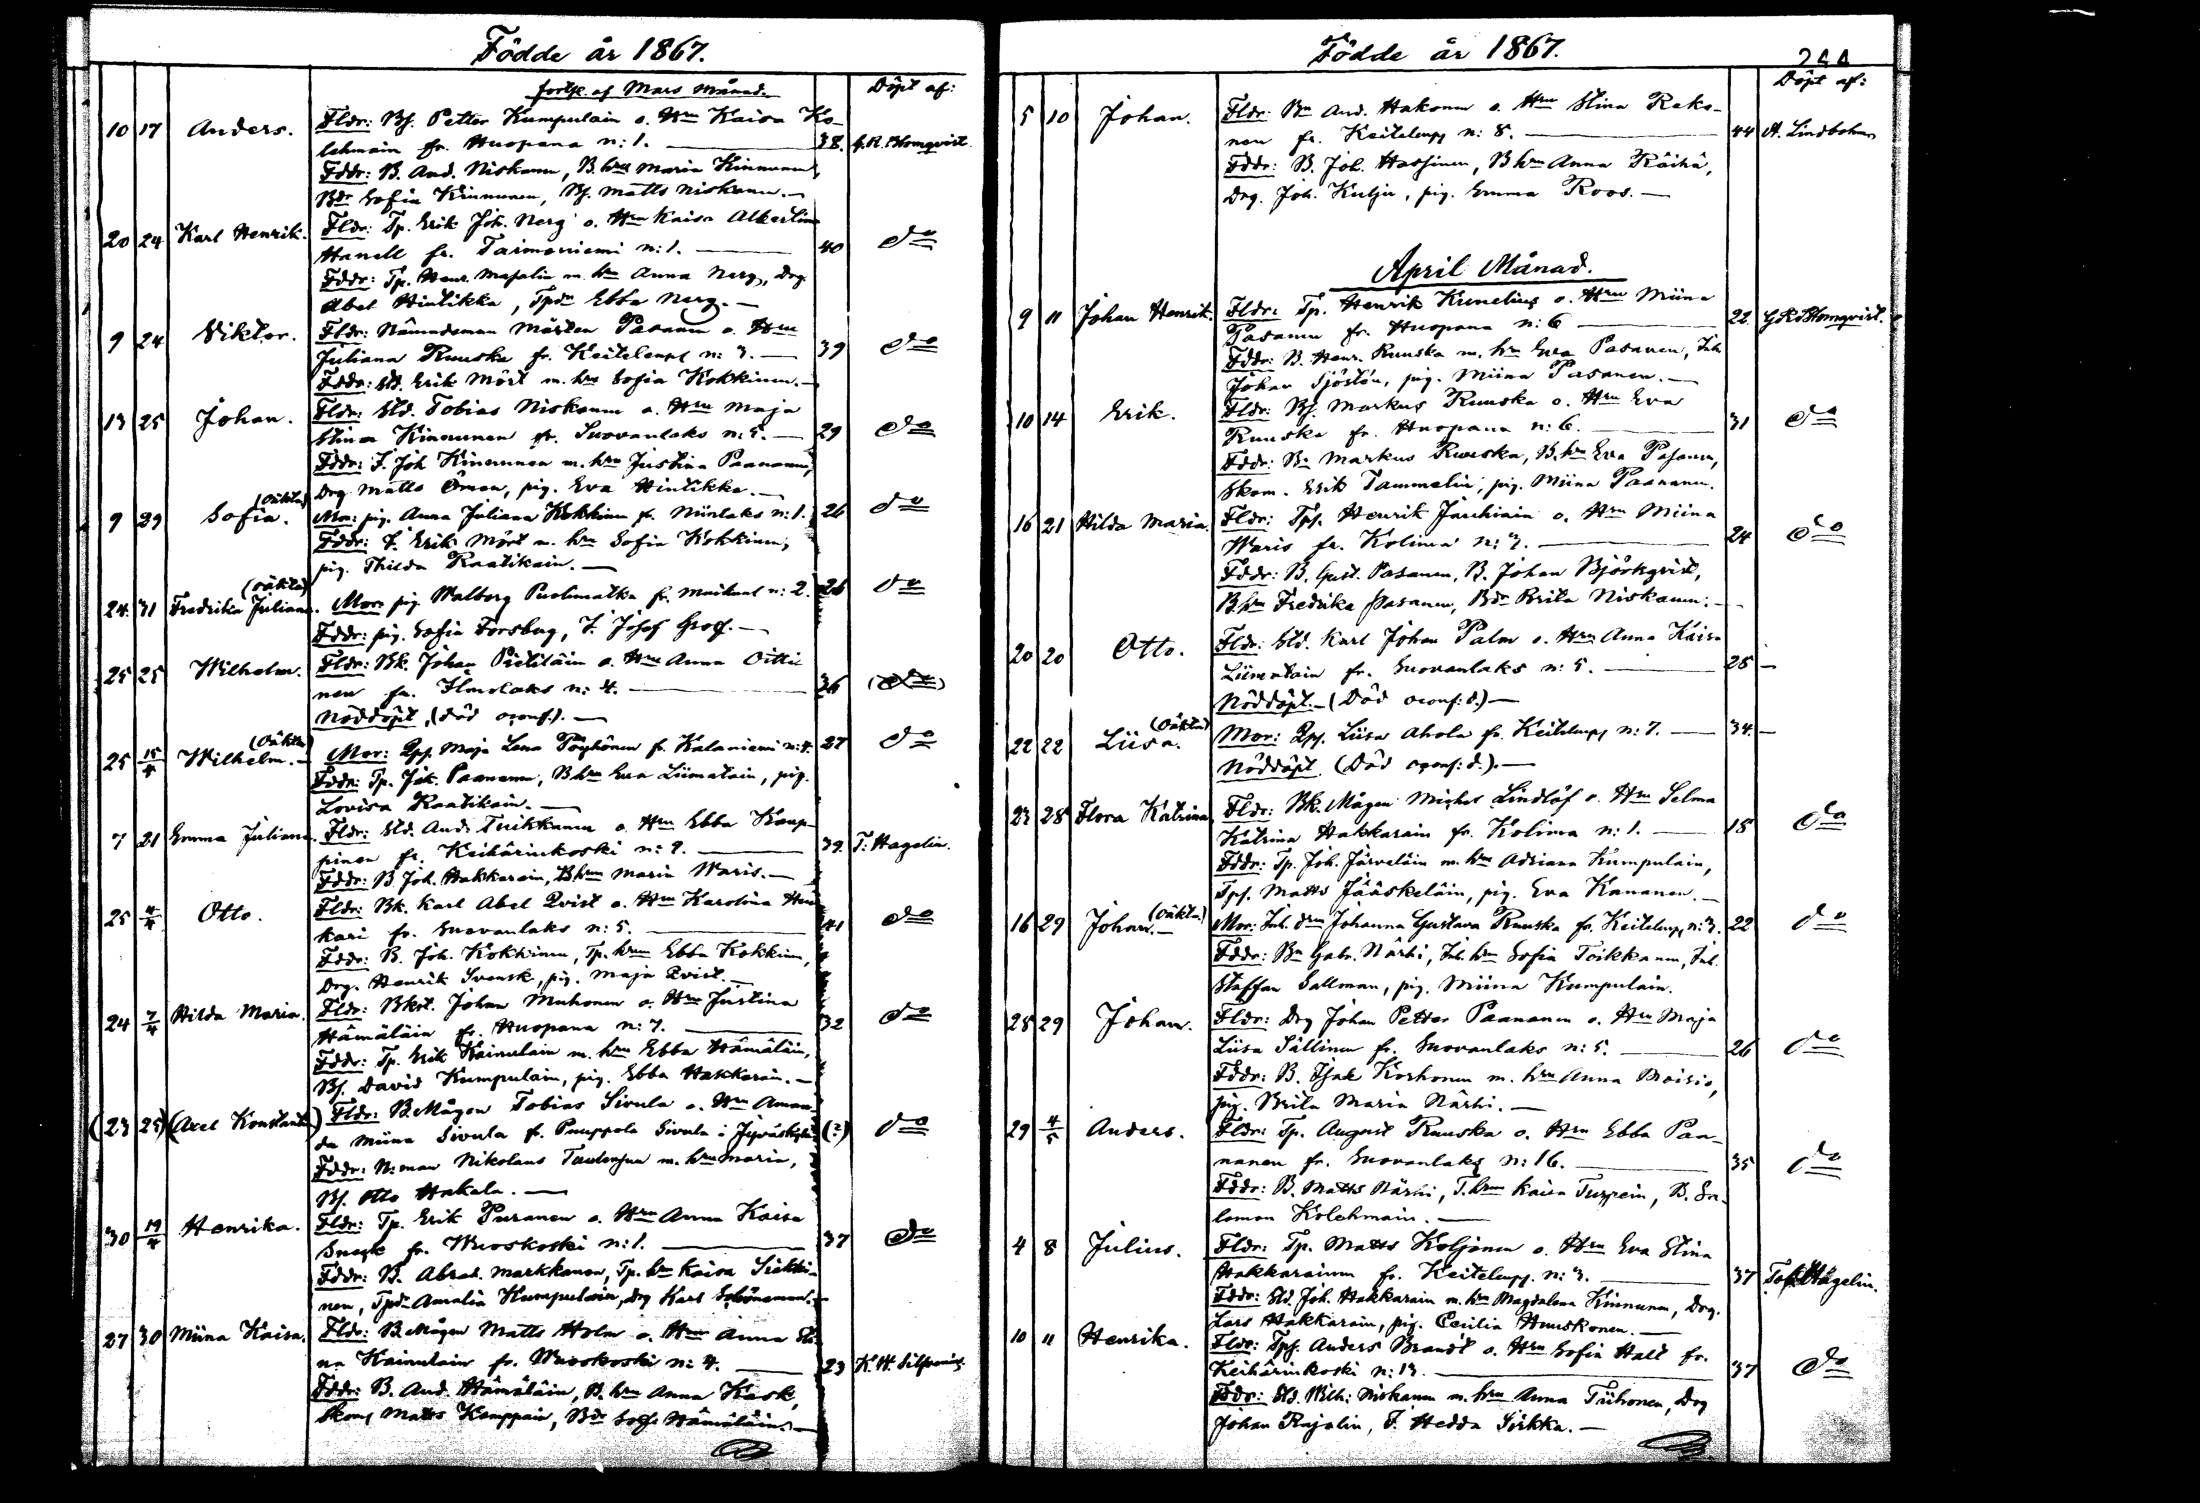 Födde år 1867.
forts. af Mars Månad.
Döpt af:
10 17 Anders. Fldr: Bf. Petter Kumpulain o. Hru Kaisa Ko-
lehmain fr. Huopana n: 1. — 38. G.R. Blomqvist.
Fddr: B. And. Niskanen, B.hru Maria Kinnunen,
Bdr Sofia Kinnunen, Bf. Matts Niskanen. —
20 24 Karl Henrik. Fldr: Tp. Erik Joh. Nerg o. Hru Kaisa Albertina
Hanell fr. Taimoniemi n: 1. — 40 do
Fddr: Tp. Henr. Majalin m. hru Anna Nerg, Drg.
Abel Hintikka, Tpdr Ebba Nerg. —
9 24 Viktor. Fldr: Nämndeman Mårten Pasanen o. Hru
Juliana Ruuska fr. Keitelepp n: 3. — 39 do
Fddr: Sld. Erik Mört m. hru Sofia Kokkinen. —
13 25 Johan. Fldr: Sld. Tobias Niskanen o. Hru Maja
Stina Kinnunen fr. Suovanlaks n: 5. — 29 do
Fddr: I. Joh Kinnunen m. hru Justina Paananen,
Drg Matts Öman, pig. Eva Hintikka. —
9 29 Sofia. (Oäkta) Mor: pig. Anna Juliana Kokkinen fr. Niinlaks n: 1. 26 do
Fddr: I. Erik Mört m. hru Sofia Kokkinen,
pig. Thilda Raatikain. —
24 31 Fredrika Juliana. (Oäkta) Mor: pig Walborg Puolimatka fr. n: 2. 26 do
Fddr: pig. Sofia Forsberg, I. Josef Grof. —
25 25 Wilhelm. Fldr: Bk. Johan Pietiläin o. Hru Anna Oitti-
nen fr. Ilmolaks n: 4. — 36 (do)
Nöddöpt, (död oconf.). —
25 15/4 Wilhelm. (Oäkta) Mor: Qpf. Maja Lena Pöyhönen fr. Kalaniemi n: 4. 27 do
Fddr: Tp. Joh. Paananen, B.hru Eva Liimatain, pig.
Lovisa Raatikain. —
7 21 Emma Juliana. Fldr: Sld. And. Tuikkanen o. Hru Ebba Kaup-
pinen fr. Keihärinkoski n: 9. — 39. T. Hagelin.
Fddr: B Joh. Hakkarain, Bhru Maria Waris. —
25 4/4 Otto. Fldr: Bk. Karl Abel Qvist o. Hru Karolina
kari fr. Suovanlaks n: 5. — 41 do
Fddr: B. Joh. Kokkinen, Tp. hru Ebba Kokkinen,
Drg. Henrik Svensk, pig. Maja Qvist. —
24 7/4 Hilda Maria. Fldr: Johan Muhonen o. Hru Justina
Hämäläin fr. Huopana n: 7. — 32 do
Fddr: Tp. Erik Kainulain m. hru Ebba Hämäläin,
Bf. David Kumpulain, pig. Ebba Hakkarain. —
(23 25) (Axel Konstantin) Fldr: B.Mågen Tobias Sivula o. Hru Aman-
da Miina Sivula fr. Puuppola Sivula i Jyväskylä (?) do
Fddr: N:man Nikolaus m. hru Maria,
Bf. Otto Hakala. —
30 19/4 Henrika. Fldr: Tp. Erik Puranen o. Hru Anna Kaisa
fr. Wuoskoski n: 1. — 37 do
Fddr: B. Abrah. Markkanen, Tp. hru Kaisa
nen, Tpdr Amalia Kumpulain, drg Karl
27 30 Miina Kaisa. Fldr: B.Mågen Matts Holm o. Hru Anna Sti-
na Kainulain fr. Wuoskoski n: 4. — 23 K.H.
Fddr: B. And. Hämäläin, B. hru Anna Kask,
Skom. Matts Kamppain, Bdr Sofi Hämäläin. —
Födde år 1867.
244
Döpt af:
5 10 Johan. Fldr: Bn And. Hakonen o. Hru Stina Reko-
nen fr. Keitelepp n: 8. — 44 A. Lindbohm
Fddr: B. Joh. Hassinen, B hru Anna Räihä,
Drg. Joh. Kulju, pig. Emma Roos. —
April Månad.
9 11 Johan Henrik. Fldr: Tp. Henrik Kunelius o. Hru Miina
Pasanen fr. Huopana n: 6 — 22. G R Blomqvist.
Fddr: B. Henr. Ruuska m. hru Eva Pasanen, Inh.
Johan Sjöstén, pig. Miina Pasanen. —
10 14 Erik. Fldr: Bf. Markus Ruuska o. Hru Eva
Ruuska fr. Huopana n: 6. — 31 do
Fddr: Bn Markus Ruuska, B.hru Eva Pasanen,
Skom. Erik Tammelin, pig. Miina Paananen.
16 21 Hilda Maria. Fldr: Tpf. Henrik Jauhiain o. Hru Miina
Waris fr. Kolima n: 3. — 24 do
Fddr: B. Gust. Pasanen, B. Johan Björkqvist,
B.hru Fredrika Pasanen, Bdr Brita Niskanen. —
20 20 Otto. Fldr: Sld. Karl Johan Palm o. Hru Anna Kaisa
Liimatain fr. Suovanlaks n: 5. — 28 —
Nöddöpt. — (Död oconf: d.) —
22 22 Liisa. (Oäkta) Mor: Qpf. Liisa Ahola fr. Keitelepp n: 7. — 34 —
Nöddöpt (Död oconf: d.). —
23 28 Flora Katrina. Fldr: Bk. Mågen Michel Lindlöf o. Hru Selma
Katrina Hakkarain fr. Kolima n: 1. — 18 do
Fddr: Tp. Joh. Järveläin m. hru Adriana Kumpulain,
Tpf. Matts Jääskeläin, pig. Eva Kananen. —
16 29 Johan. — (Oäkta) Mor: Inh. drn Johanna Gustava Ruuska fr. Keitelepp n: 3. 22 do
Fddr: Bn Gabr. Närhi, Inh. hru Sofia Toikkanen, Inh.
Staffan Sallman, pig. Miina Kumpulain.
28 29 Johan. Fldr: Drg Johan Petter Paananen o. Hru Maja
Liisa Sällinen fr. Suovanlaks n: 5. — 26 do
Fddr: B. Isak Korhonen m. hru Anna Moisio,
pig. Brita Maria Närhi. —
29 4/5 Anders. Fldr: Tp. August Ruuska o. Hru Ebba Paa-
nanen fr. Suovanlaks n: 16. — 35 do
Fddr: B. Matts Närhi, T. hru Kaisa Turpein, B. Sa-
lomon Kolehmain. —
4 8 Julius. Fldr: Tp. Matts Koljonen o. Hru Eva Stina
Hakkarainen fr. Keitelepp. n: 3. — 37 Hagelin.
Fddr: Sld. Joh. Hakkarain m. hru Magdalena Kinnunen, Drg.
Lars Hakkarain, pig. Cecilia Huuskonen. —
10 11 Henrika. Fldr: Tpf. Anders Brandt o. Hru Sofia Hall fr.
Keihärinkoski n: 13. — 37 do
Fddr: Sld. Wilh: Niskanen m. hru Anna Tiihonen, Drg
Johan Rajalin, I. Hedda Sirkka. —